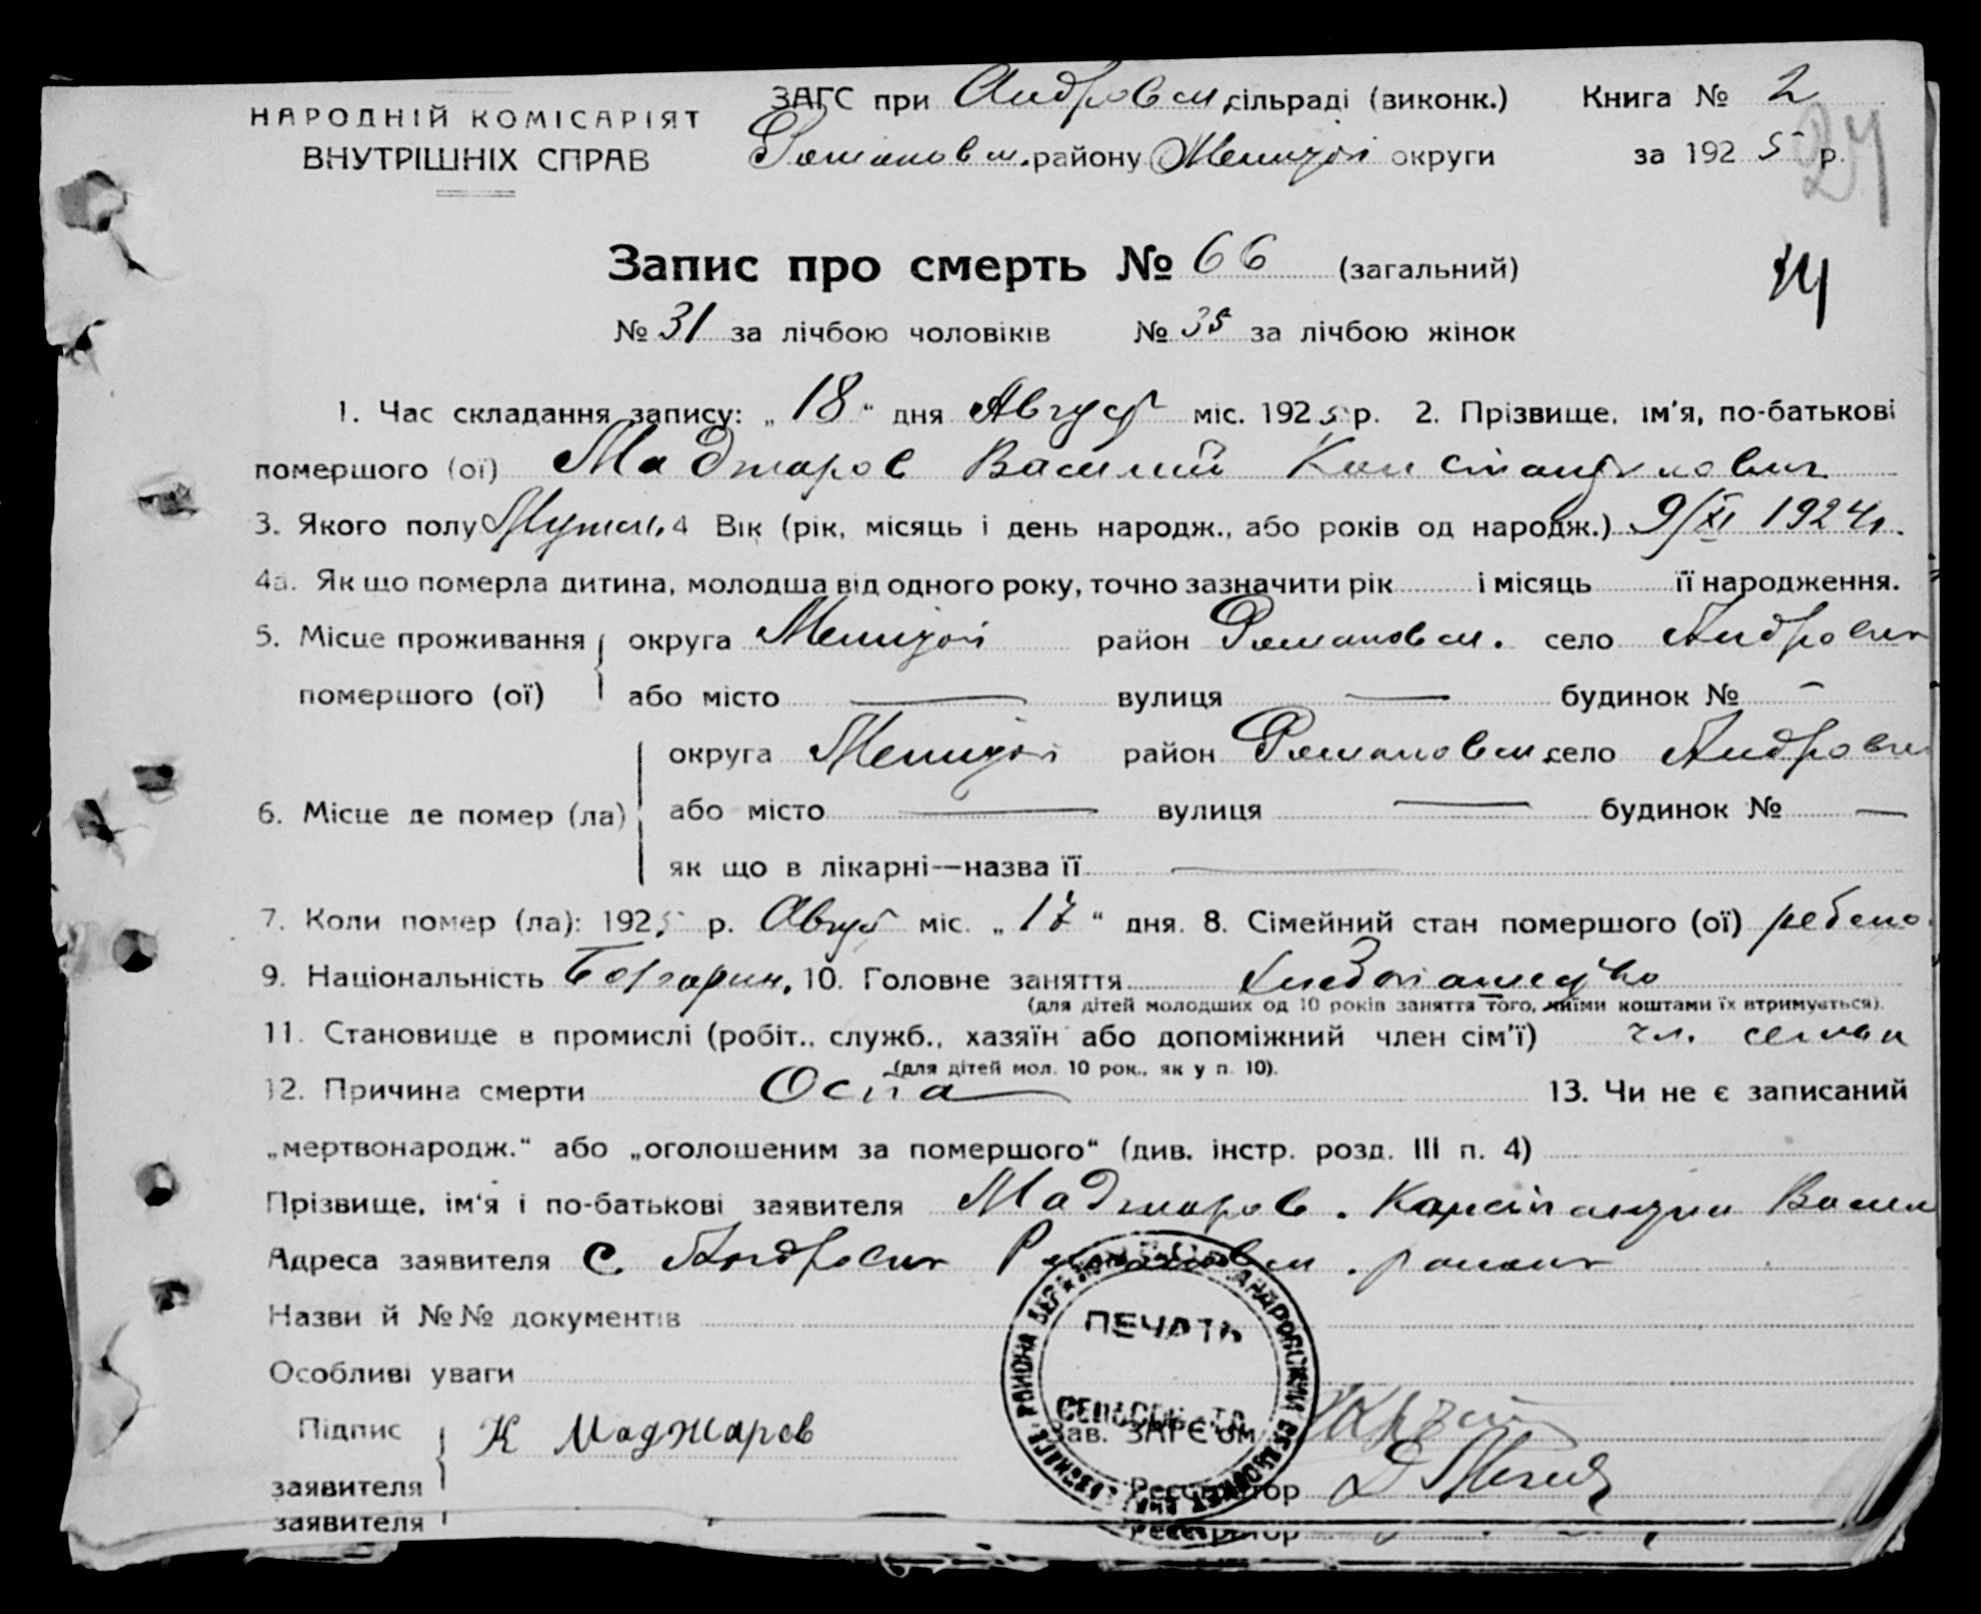 НАРОДНІЙ КОМІСАРІЯТ
ВНУТРІШНІХ СПРАВ
ЗАГС при Андровск. сільраді (виконк.) Книга № 2
Романовск. району Мелитоп округи за 1925 р.
24
Запис про смерть № 66 (загальний)
14
№ 31 за лічбою чоловіків № 35 за лічбою жінок
1. Час складання запису: „ 18 “ дня Август міс. 1925 р. 2. Прізвище, ім'я, по-батькові
помершого (ої) Маджаров Василий Константинович
3. Якого полу Мужск. 4 Вік (рік, місяць і день народж., або років од народж.) 9/XI 1924 г.
4а. Як що померла дитина, молодша від одного року, точно зазначити рік і місяць її народження.
5. Місце проживання округа Мелитоп район Романовск. село Андровка
помершого (ої) або місто — вулиця — будинок № —
округа Мелитоп район Романовск. село Андровка
6. Місце де помер (ла) або місто — вулиця — будинок № —
як що в лікарні—назва її —
7. Коли помер (ла): 1925 р. Август міс. „ 17 “ дня. 8. Сімейний стан помершого (ої) ребено
9. Національність Болгарин, 10. Головне заняття Хлебопашество
(для дітей молодших од 10 років заняття того, чиїми коштами їх втримується).
11. Становище в промислі (робіт., служб., хазяїн або допоміжний член сім'ї) чл. семьи
(для дітей мол. 10 рок., як у п. 10).
12. Причина смерти Оспа 13. Чи не є записаний
„мертвонародж.“ або „оголошеним за помершого“ (див. інстр. розд. III п. 4)
Прізвище, ім'я і по-батькові заявителя Маджаров. Константин Васил
Адреса заявителя С. Андровка Романовск. района
Назви й №№ документів
Особливі уваги
ПЕЧАТЬ
СЕЛЬСОВЕТА
АНДРОВСКИЙ СЕЛЬСОВЕТ
РАЙОНА
Підпис К Маджаров Зав. ЗАГС'ом
заявителя Реєстратор
заявителя Реєстратор